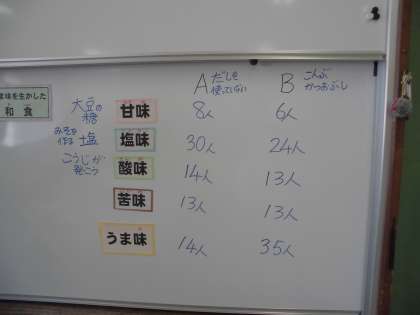 味を生かした
和食
A だしを使っていない
B こんぶ かつおぶし
大豆の糖 甘味 8人 6人
みそを作る 塩 塩味 30人 24人
こうじが発こう 酸味 14人 13人
苦味 13人 13人
うま味 14人 35人